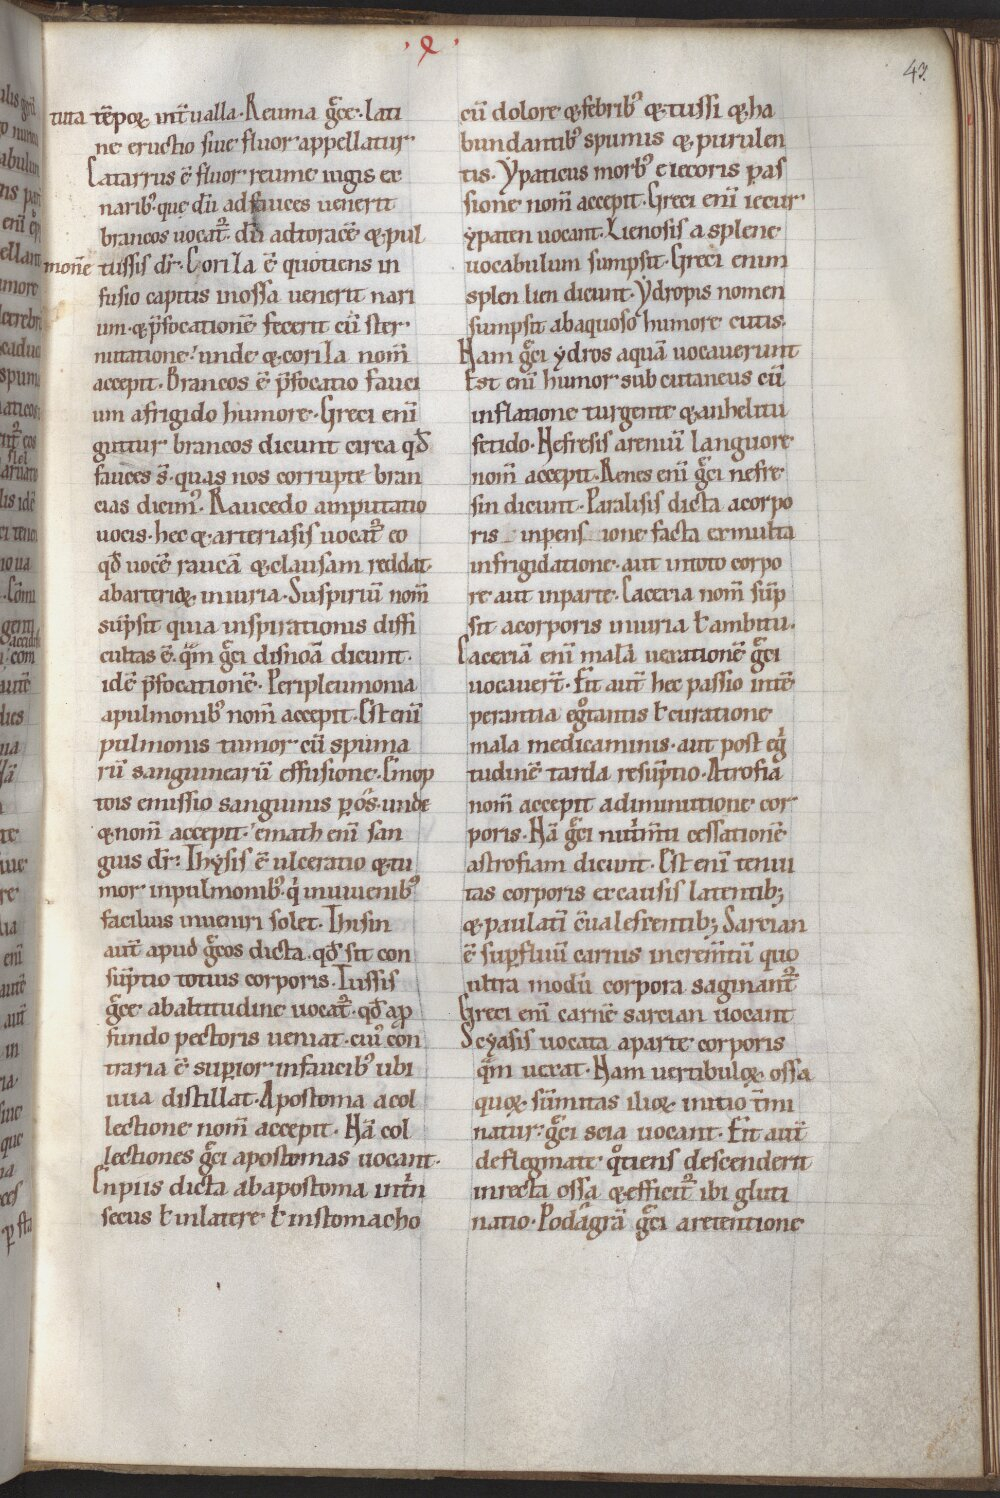 43
tura tēporꝝ int̄ualla. Reuma grͣce. lati
ne eructio siue fluor appellatur
Catarrus ē fluor reume iugis ex
narib; que dū ad fauces uenerit
brancos uocat᷑. dū ad toracē & pul
monē tussis dr̄. Corila ē quotiens in
fusio capitis in ossa uenerit nari
um. & p̄focationē fecerit cū ster
nutatione. unde & corila nom̄
accepit. Brancos ē p̄focatio fauci
um a frigido humore. Greci enī
guttur brancos dicunt circa qđ
fauces s̄. quas nos corrupte bran
cias dicimꝰ. Raucedo amputatio
uocis. hec & arteriasis uocat᷑ eo
qđ uocē raucā & clausam reddat.
ab arteriaꝝ iniuria. Suspiriū nom̄
sūpsit quia inspirationis diffi
cultas ē. quā grͣeci disnoā dicunt.
idē p̄focationē. Peripleumonia
a pulmonibꝰ nom̄ accepit. Est enī
pulmonis tumor cū spuma
rū sanguinearū effusione. Emop
tois emissio sanguinis ꝑ os. unde
& nom̄ accepit. emath enī san
guis dr̄. Thysis ē ulceratio & tu
mor in pulmonibꝰ. qͥ in iuuenibꝰ
facilius inueniri solet. Thisin
aut̄ apud grͣcos dicta. qđ sit con
sūptio totius corporis. Tussis
grͣce ab altitudine uocat᷑. qđ a ꝓ
fundo pectoris ueniat. cuiꝰ con
traria ē superior in faucibꝰ ubi
uua distillat. Apostoma a col
lectione nom̄ accepit. Nā col
lectiones grͣeci apostomas uocant.
Enpiis dicta ab apostoma intrin
secus ł in latere ł in stomacho
cū dolore & febribꝰ & tussi & ha
bundantibꝰ spumis & purulen
tis. Ypaticus morbꝰ e iecoris pas
sione nom̄ accepit. Greci enī iecur
ypaten uocant. Lienosis a splene
uocabulum sumpsit. Greci enim
splen lien dicunt. Ydropis nomen
sumpsit ab aquoso humore cutis.
Nam grͣeci ydros aquā uocauerunt
Est enī humor subcutaneus cū
inflatione turgente & anhelitu
fetido. Nefresis a renū languore
nom̄ accepit. Renes enī grͣeci nefre
sin dicunt. Paralisis dicta a corpo
ris inpensione facta ex multa
infrigidatione. aut in toto corpo
re aut in parte. Caceria nom̄ sūp
sit a corporis iniuria ł ambitu.
Caceriā enī malā uexationē grͣeci
uocauer̄t. Fit aut̄ hec passio intē
perantia egͦtantis ł curatione
mala medicaminis. aut post egͥ
tudinē tarda resūptio. Atrofia
nom̄ accepit a diminutione cor
poris. Nā grͣeci nut̄m̄ti cessationē
astrofiam dicunt. Est enī tenui
tas corporis ex causis latentib;
& paulatī cūalescentib; Sarcian
ē supfluū carnis increm̄tū quo
ultra modū corpora saginant᷑
Greci enī carnē sarcian uocant
Scyasis uocata a parte corporis
quā uexat. Nam uertibuloꝝ ossa
quoꝝ sūmitas ilioꝝ initio t̄mi
natur. grͣeci scia uocant. Fit aut̄
de flegmate qͦtiens descenderit
in recta ossa & efficit᷑ ibi gluti
natio. Podagrā grͣeci a retentione